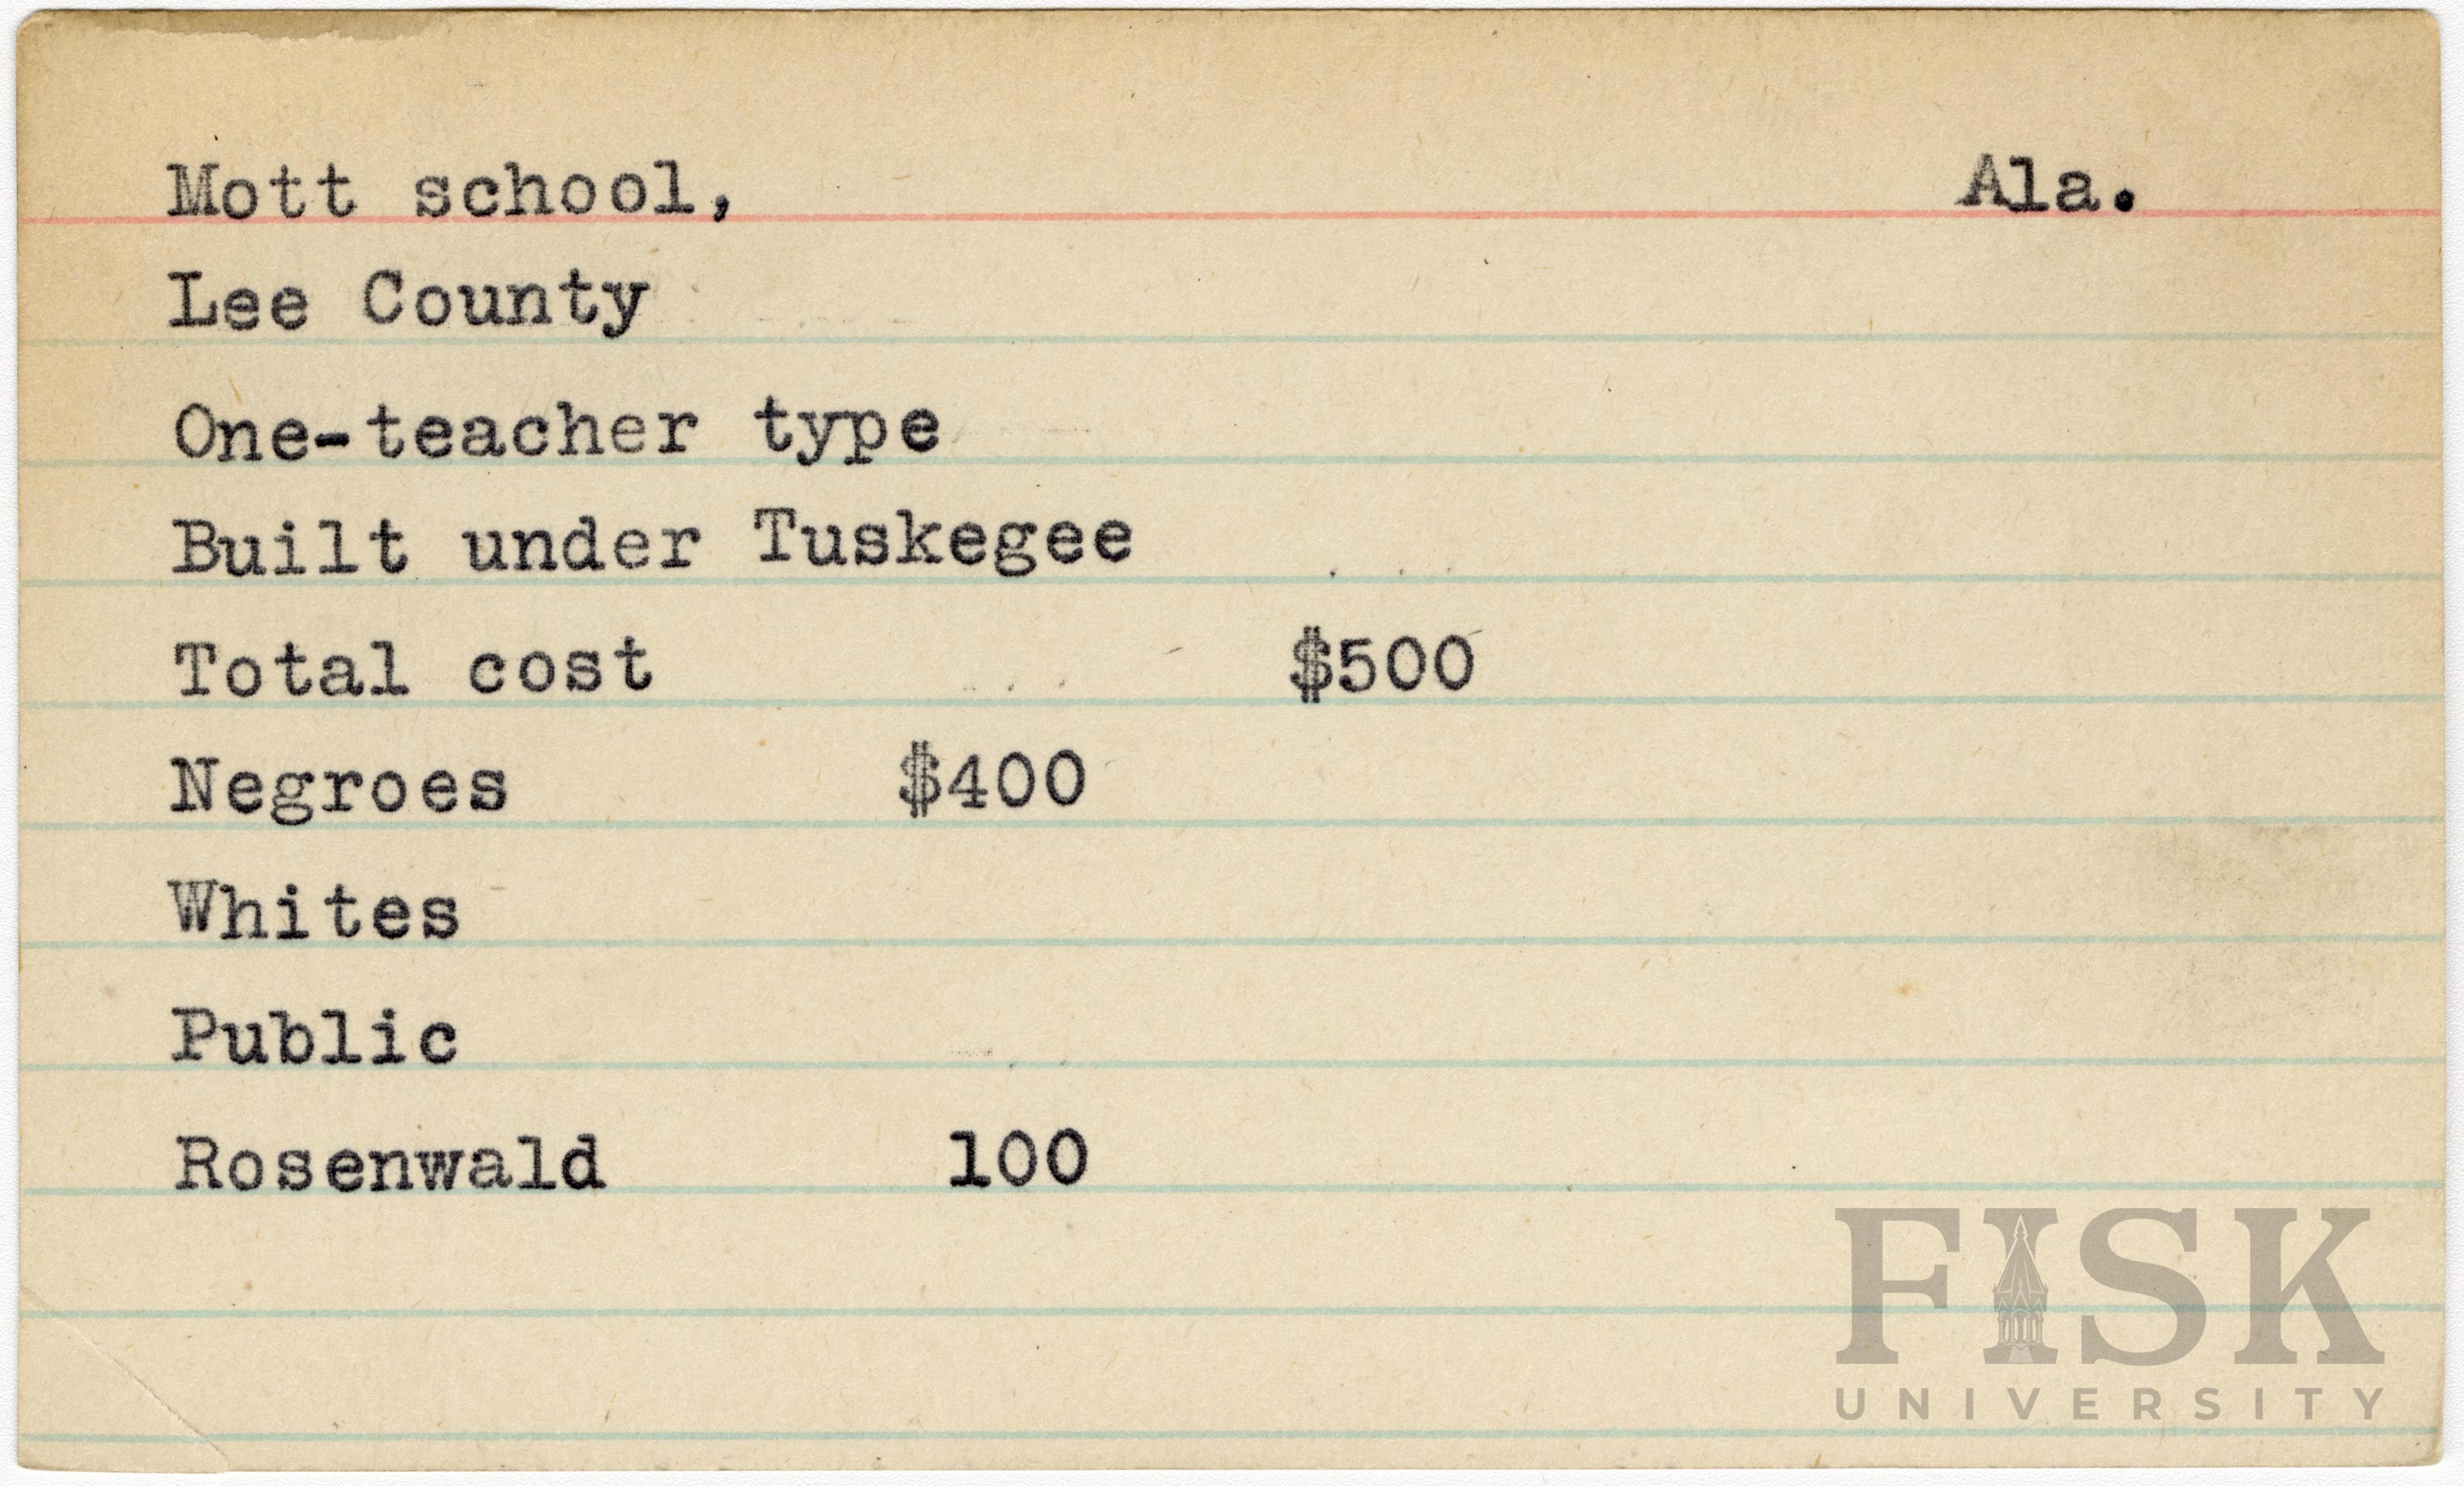 Mott school, Ala.
Lee County
One-teacher type
Built under Tuskegee
Total cost $500
Negroes $400
Whites
Public
Rosenwald 100
FISK
UNIVERSITY